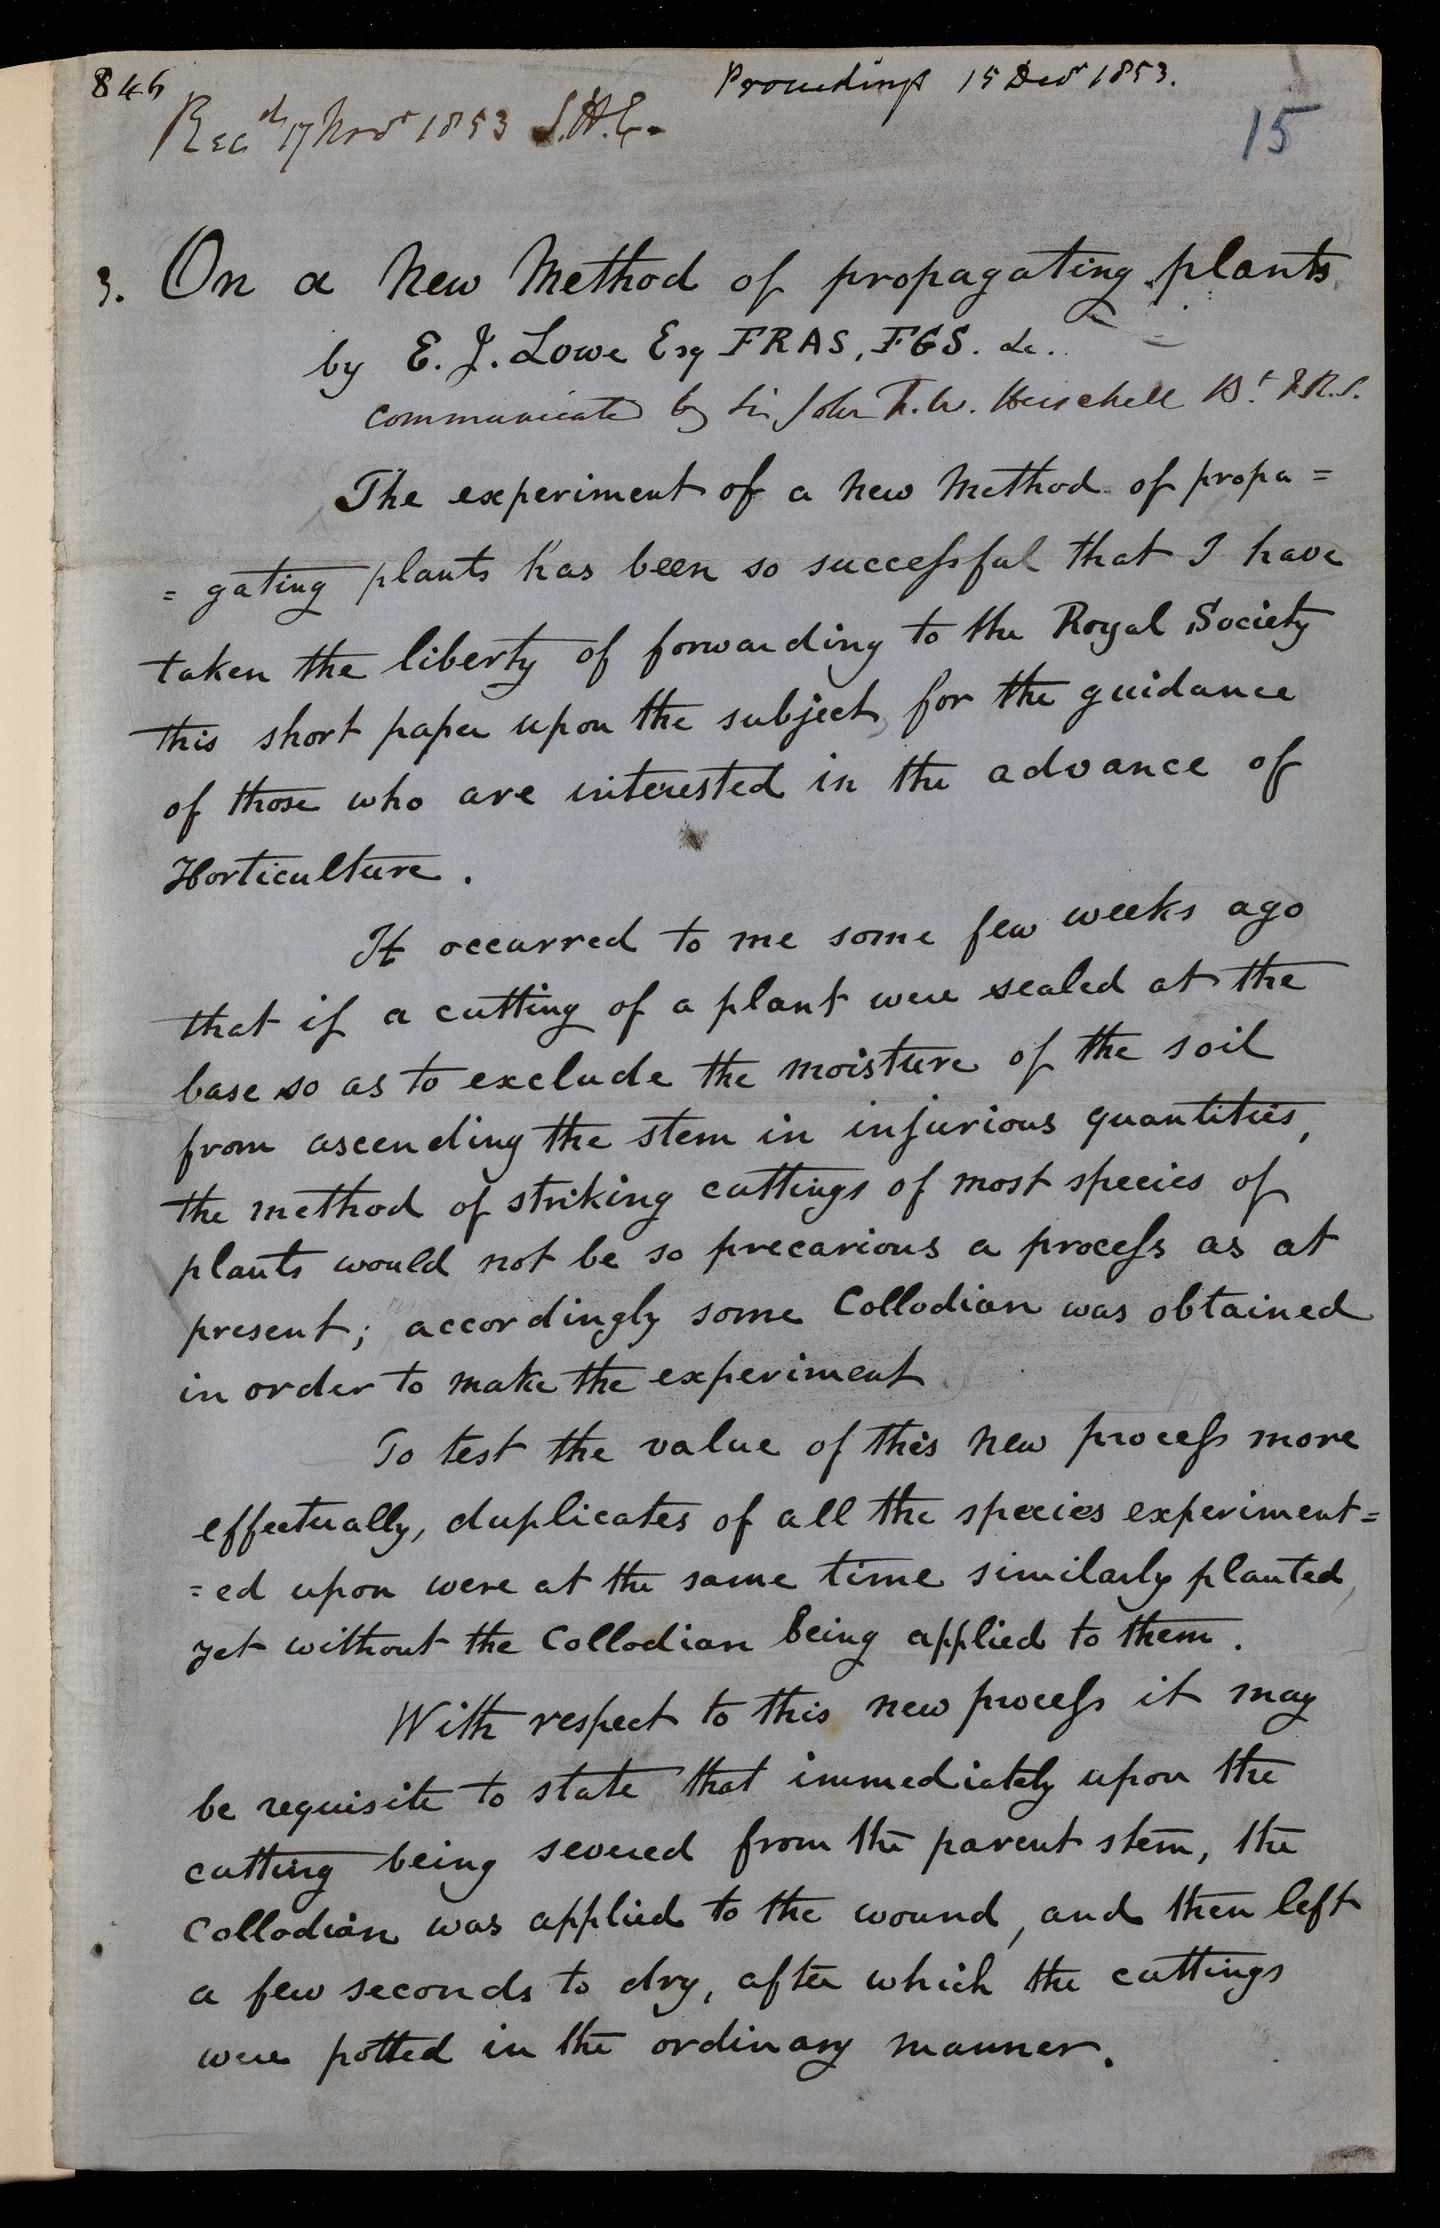 846
Proceedings 15 Decr 1853.
Recd 17 Novr 1853 S.H.C.
15
3. On a New Method of propagating plants
by E. J. Lowe Esq FRAS, FGS. &c..
communicated by Sir John F.W. Herschell Bt F.R.S.
The experiment of a new method of propa=
=gating plants has been so successful that I have
taken the liberty of forwarding to the Royal Society
this short paper upon the subject, for the guidance
of those who are interested in the advance of
Horticulture.
It occurred to me some few weeks ago
that if a cutting of a plant were sealed at the
base so as to exclude the moisture of the soil
from ascending the stem in injurious quantities,
the method of striking cuttings of most species of
plants would not be so precarious a process as at
present; accordingly some Collodian was obtained
in order to make the experiment
To test the value of this new process more
effectually, duplicates of all the species experiment=
=ed upon were at the same time similarly planted,
yet without the Collodian being applied to them.
With respect to this new process it may
be requisite to state that immediately upon the
cutting being severed from the parent stem, the
Collodian was applied to the wound, and then left
a few seconds to dry, after which the cuttings
were potted in the ordinary manner.